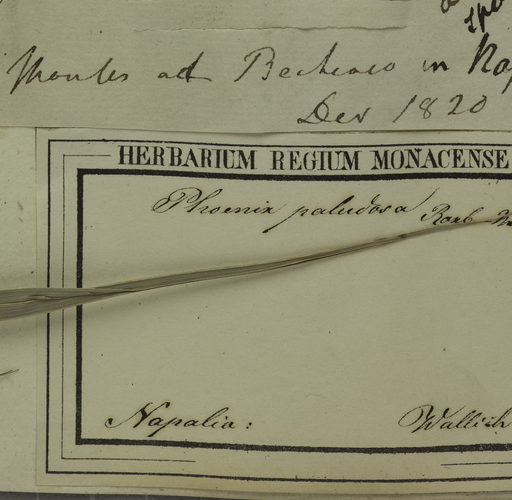 Montes ad Bechiaco in Nap
Dev 1820
HERBARIUM REGIUM MONACENSE
Phoenix paludosa Roxb
Napalia:
Wallich